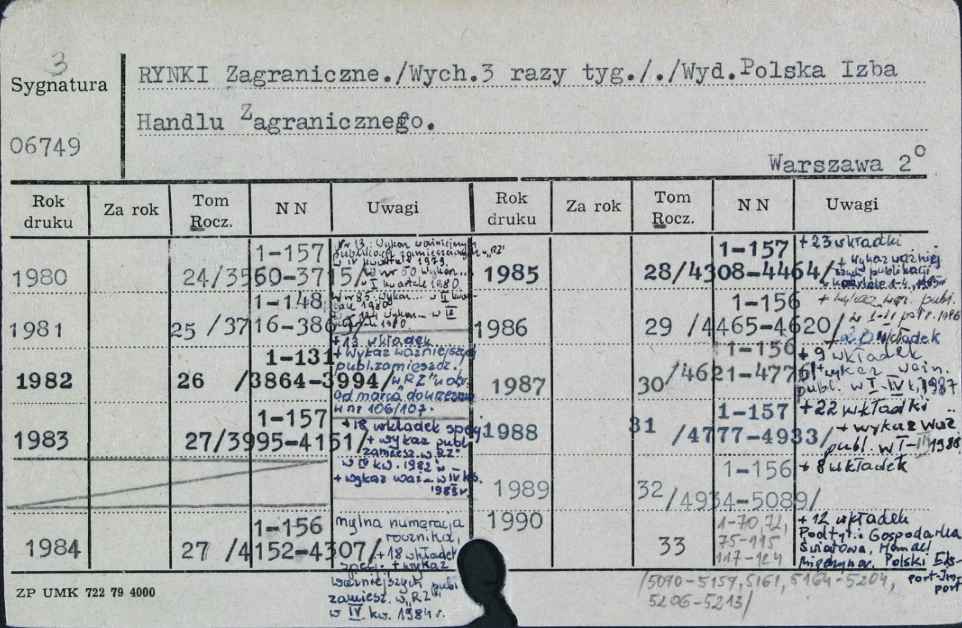 3
Sygnatura
06749
RYNKI Zagraniczne./Wych.3 razy tyg././Wyd.Polska Izba
Handlu Zagranicznego.
Warszawa 2°
Rok druku | Za rok | Tom Rocz. | N N | Uwagi | Rok druku | Za rok | Tom Rocz. | N N | Uwagi
1980 24/3560-3715/ 1-157
Nr 13: Wykaz ważniejszych
publikacji zamieszczonych w "RZ"
w IV kwartale 1979.
w nr 50 wykaz...
w I kwartale 1980
1981 25 /3716-3863/ 1-148
w nr 85 wykaz... w II kwartale 1980
1982 26 /3864-3994/ 1-131
+ 13 wkładek
+ wykaz ważniejszej
publ. zamieszcz.
w "RZ" w okr.
od marca do września
w nr 106/107.
1983 27/3995-4151/ 1-157
+ 18 wkładek spec.
+ wykaz publ.
zamiesz. w "RZ"
w IV kw. 1982
+ wykaz waż. w IV kw.
1983 r.
1984 27 /4152-4307/ 1-156
mylna numeracja
rocznika,
+ 18 wkładek
spec. + wykaz
ważniejszych publ.
zamiesz. w "RZ"
w IV kw. 1984 r.
1985 28/4308-4464/ 1-157
+ 23 wkładki
+ wykaz ważniej.
publikacji
1986 29 /4465-4620/ 1-156
+ wykaz waż. publ.
w I-II półr. 1986
+ 20 wkładek
1987 30 /4621-4776/ 1-156
+ 9 wkładek
+ wykaz ważn.
publ. w I-IV k. 1987
1988 31 /4777-4933/ 1-157
+ 22 wkładki
+ wykaz waż.
publ. w I- 1988
1989 32 /4934-5089/ 1-156
+ 8 wkładek
1990 33 1-70, 72,
75-115
117-124
+ 12 wkładek
Podtyt.: Gospodarka
Światowa, Handel
Międzynar. Polski Eks-
port-Import
/5090-5159, 5161, 5164-5204,
5206-5213/
ZP UMK 722 79 4000